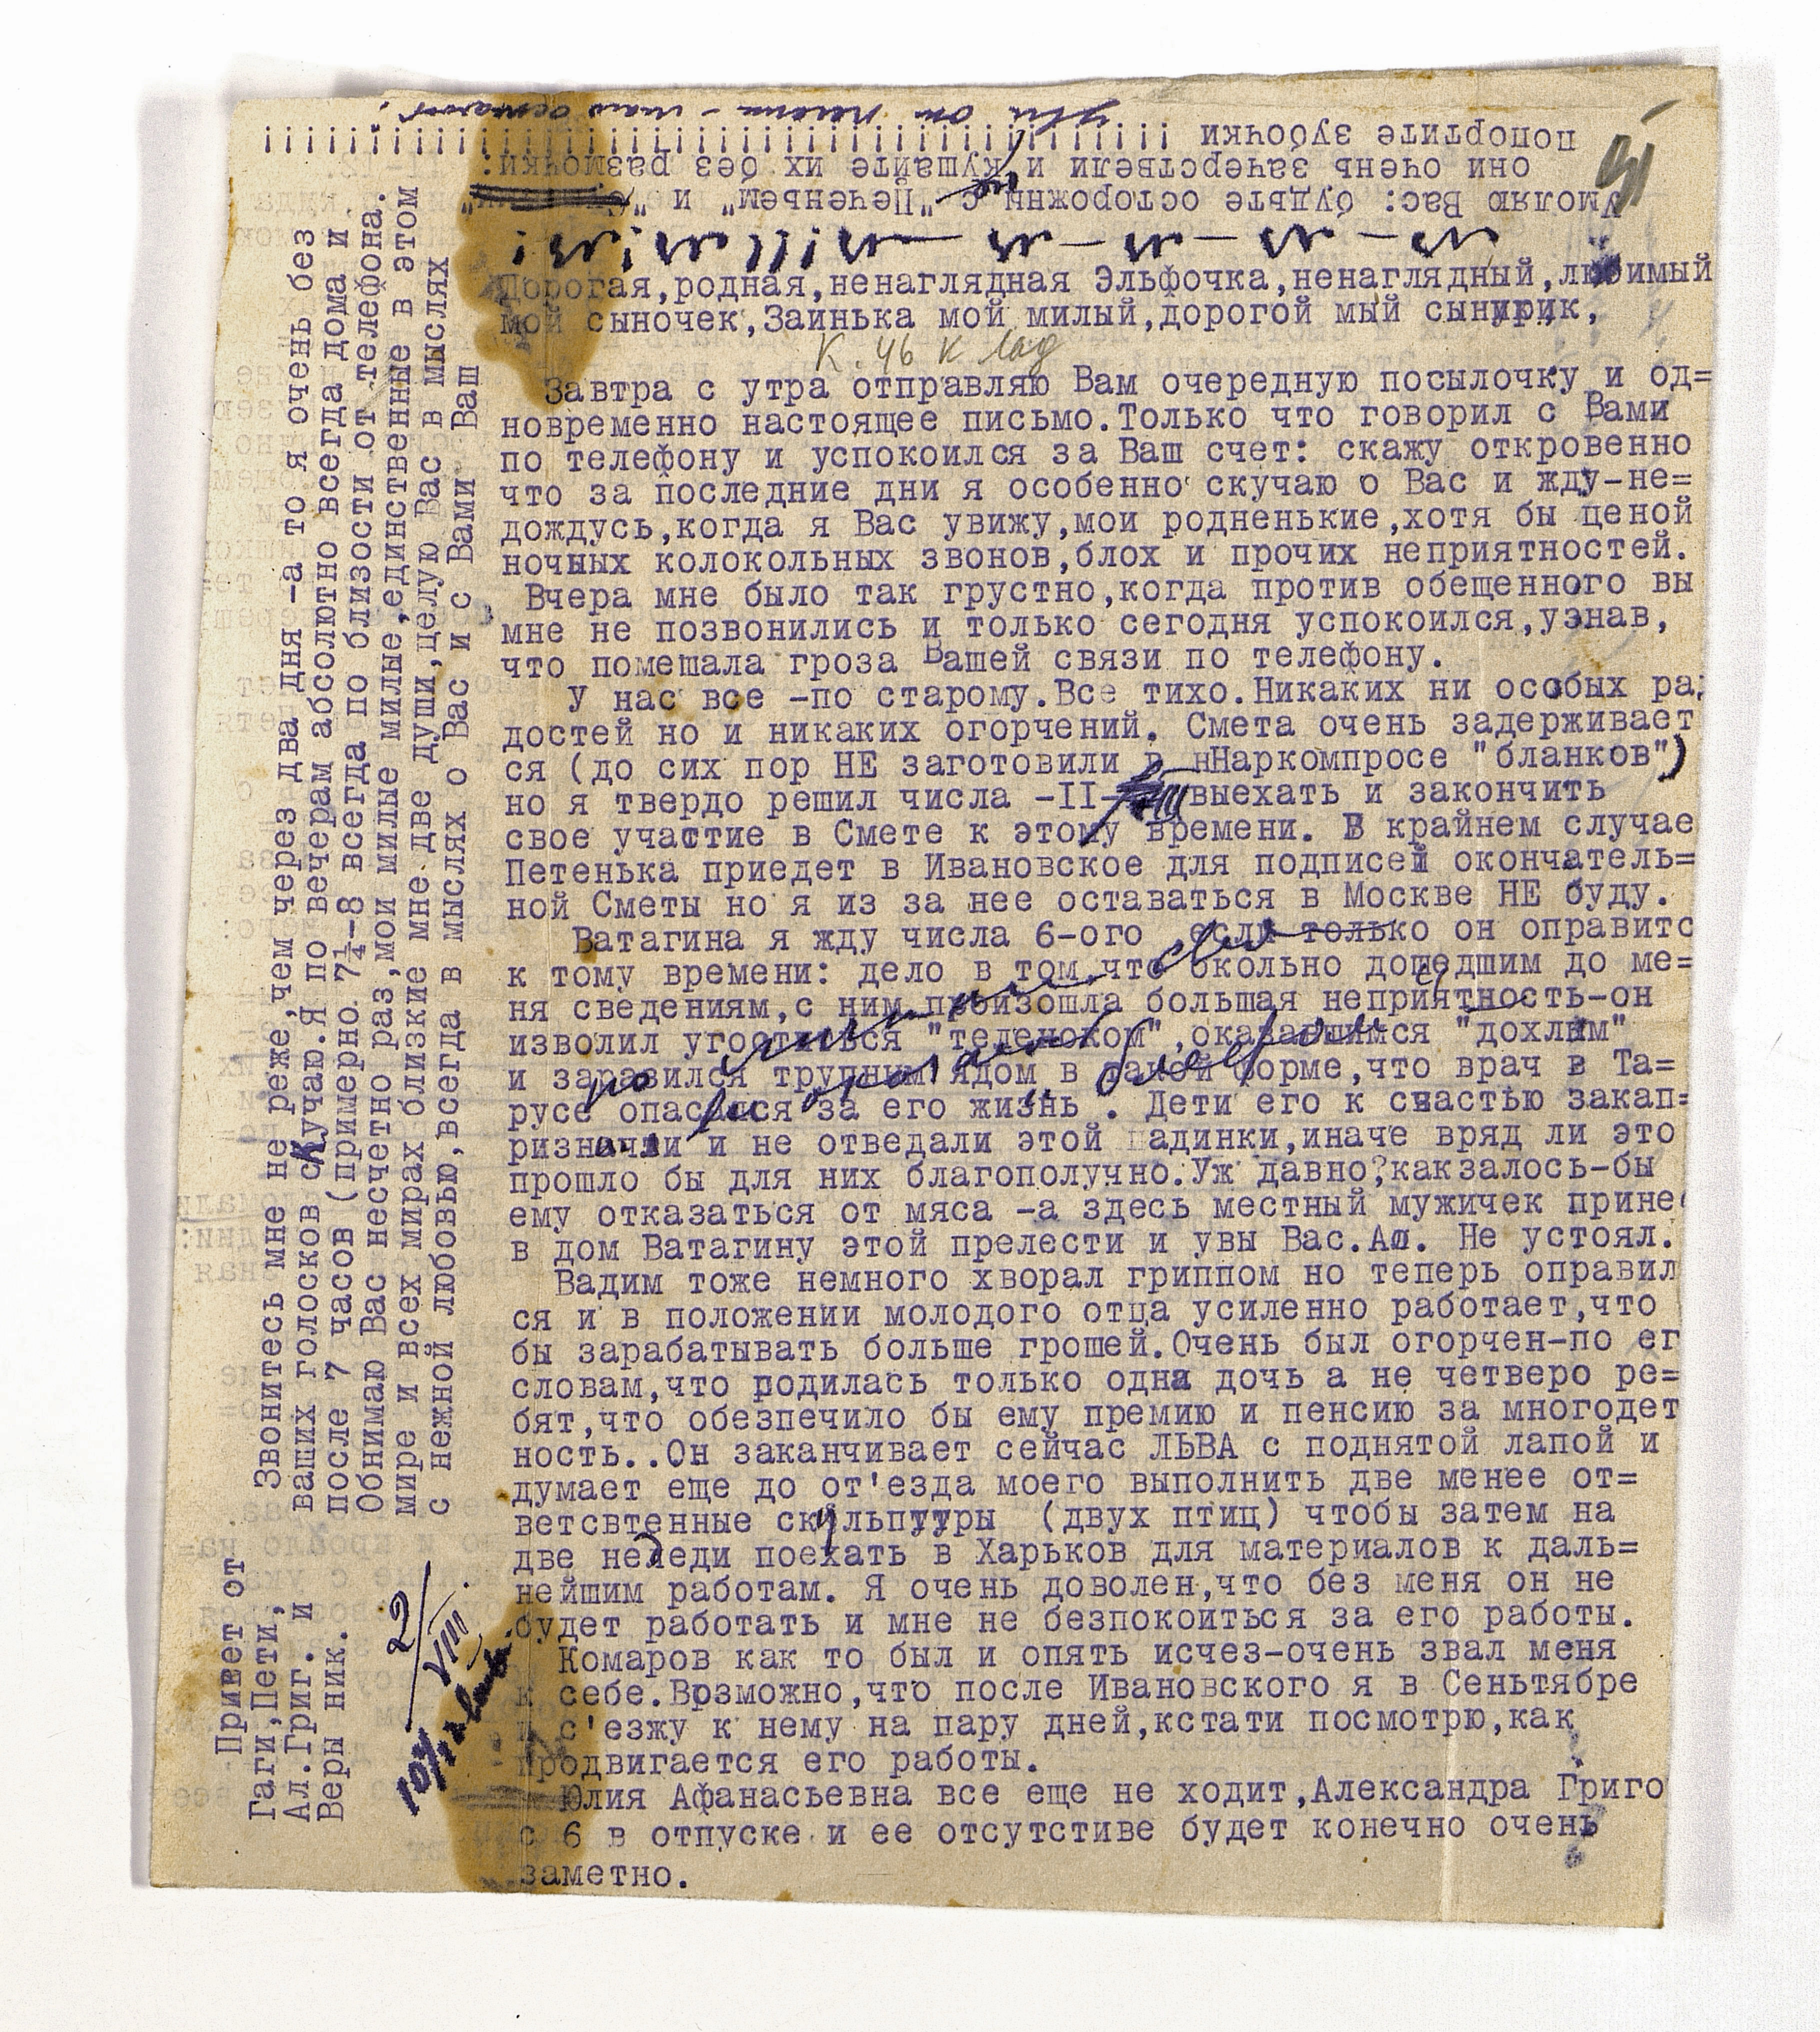 Дорогая,родная,ненаглядная Эльфочка,ненаглядный,любимый
мой сыночек,Заинька мой милый,дорогой мый сынурик,
Завтра с утра отправляю Вам очередную посылочку и од=
новременно настоящее письмо.Только что говорил с Вами
по телефону и успокоился за Ваш счет: скажу откровенно
что за последние дни я особенно скучаю о Вас и жду-не=
дождусь,когда я Вас увижу,мои родненькие,хотя бы ценой
ночных колокольных звонов,блох и прочих неприятностей.
Вчера мне было так грустно,когда против обещенного вы
мне не позвонились и только сегодня успокоился,узнав,
что помешала гроза Вашей связи по телефону.
У нас все -по старому.Все тихо.Никаких ни особых рад
достей но и никаких огорчений. Смета очень задерживает
ся (до сих пор НЕ заготовили в нНаркомпросе "бланков")
но я твердо решил числа -II- выехать и закончить
свое участие в Смете к этому времени. В крайнем случае
Петенька приедет в Ивановское для подписей окончатель=
ной Сметы но я из за нее оставаться в Москве НЕ буду.
Ватагина я жду числа 6-ого ,если только он оправитс
к тому времени: дело в том,что окольно дошедшим до ме=
ня сведениям,с ним произошла большая неприятность-он
изволил угоститься "теленоком",оказавшимся "дохлым"
и заразился трупным ядом в такой форме,что врач в Та=
русе опасался за его жизнь . Дети его к счастью закап=
ризначли и не отведали этой падинки,иначе вряд ли это
прошло бы для них благополучно.Уж давно?какзалось-бы
ему отказаться от мяса -а здесь местный мужичек принес
в дом Ватагину этой прелести и увы Вас.Ал. Не устоял.
Вадим тоже немного хворал гриппом но теперь оправил
ся и в положении молодого отца усиленно работает,что
бы зарабатывать больше грошей.Очень был огорчен-по ег
словам,что родилась только одна дочь а не четверо ре=
бят,что обезпечило бы ему премию и пенсию за многодет
ность..Он заканчивает сейчас ЛЬВА с поднятой лапой и
думает еще до от'езда моего выполнить две менее от=
ветсвтенные скульптуры (двух птиц) чтобы затем на
две недеди поехать в Харьков для материалов к даль=
нейшим работам. Я очень доволен,что без меня он не
будет работать и мне не безпокоиться за его работы.
Комаров как то был и опять исчез-очень звал меня
к себе.Возможно,что после Ивановского я в Сеньтябре
и с'езжу к нему на пару дней,кстати посмотрю,как
продвигается его работы.
Юлия Афанасьевна все еще не ходит,Александра Григо
с 6 в отпуске и ее отсутстиве будет конечно очень
заметно.
Звонитесь мне не реже,чем через два дня -а то я очень без
ваших голосков скучаю.Я по вечерам абсолютно всегда дома и
после 7 часов (примерно 7¼-8 всегда по близости от телефона.
Обнимаю Вас несчетно раз,мои милые милые,единственные в этом
мире и всех мирах близкие мне две души,целую Вас в мыслях
с нежной любовью,всегда в мыслях о Вас и с Вами Ваш
Привет от
Гаги,Пети,
Ал.Григ. и
Веры ник.
2/VIII
Умоляю Вас: будьте осторожны с "Печеньем" и
они очень зачерствели и не кушайте их без размочки:
попортите зубочки !!!!!!!!!!!!!!!!!!!!!!!!!!!!!!!!!!!!!!!!!!